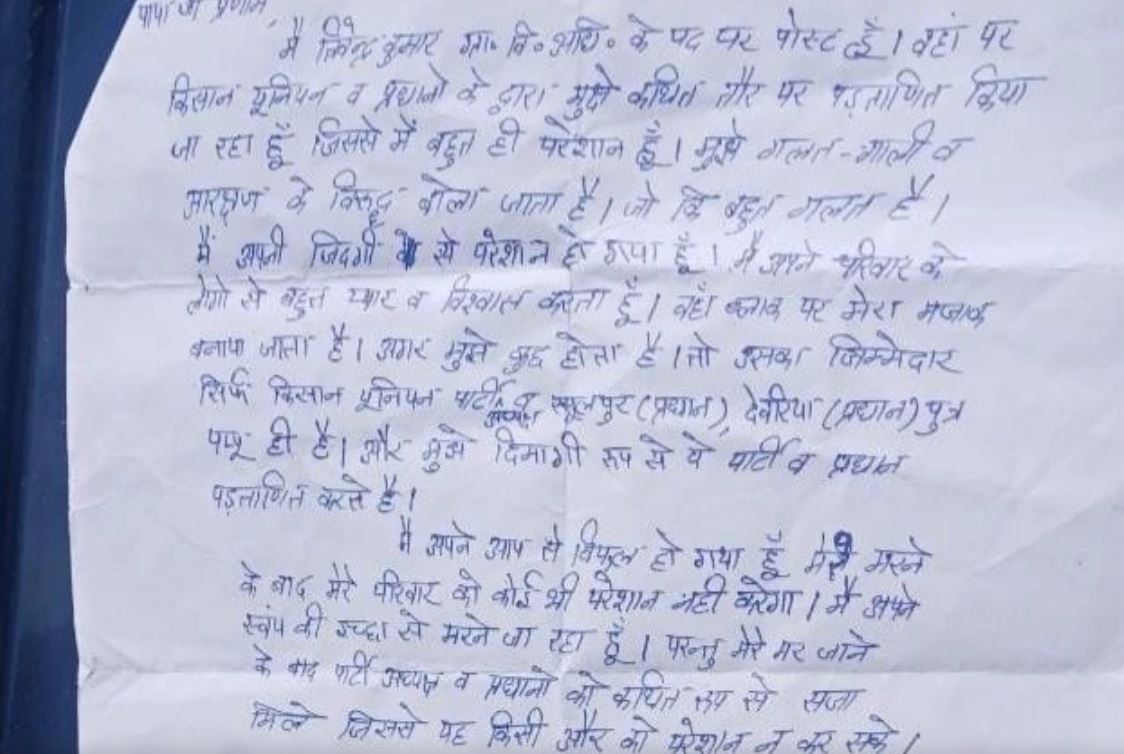 पापा जी प्रणाम,
मै त्रिवेन्द्र कुमार ग्रा. वि. अधि. के पद पर पोस्ट हूँ। वहां पर
किसान यूनियन व प्रधानो के द्वारा मुझे कथित तौर पर पड़ताणित किया
जा रहा हूँ जिससे में बहुत ही परेशान हूँ। मुझे गलत-गाली व
आरक्षण के विरूद्ध बोला जाता है। जो कि बहुत गलत है।
मैं अपनी जिदगी से परेशान हो गया हूँ। मै अपने परिवार के
लोगो से बहुत प्यार व विश्वास करता हूँ। वहाँ ब्लाक पर मेरा मजाक
बनाया जाता है। अगर मुझे कुछ होता है। तो उसका जिम्मेदार
सिर्फ किसान यूनियन पार्टी अध्यक्ष व रसूलपुर (प्रधान), देवरिया (प्रधान) पुत्र
पप्पू ही है। और मुझे दिमागी रूप से ये पार्टी व प्रधान
पड़ताणित करते है।
मै अपने आप से विफल हो गया हूँ मेरे मरने
के बाद मेरे परिवार को कोई भी परेशान नही करेगा। मै अपने
स्वंय की इच्छा से मरने जा रहा हूँ। परन्तु मेरे मर जाने
के बाद पार्टी अध्यक्ष व प्रधानो को कथित रूप से सजा
मिले जिससे यह किसी और को परेशान न कर सके।